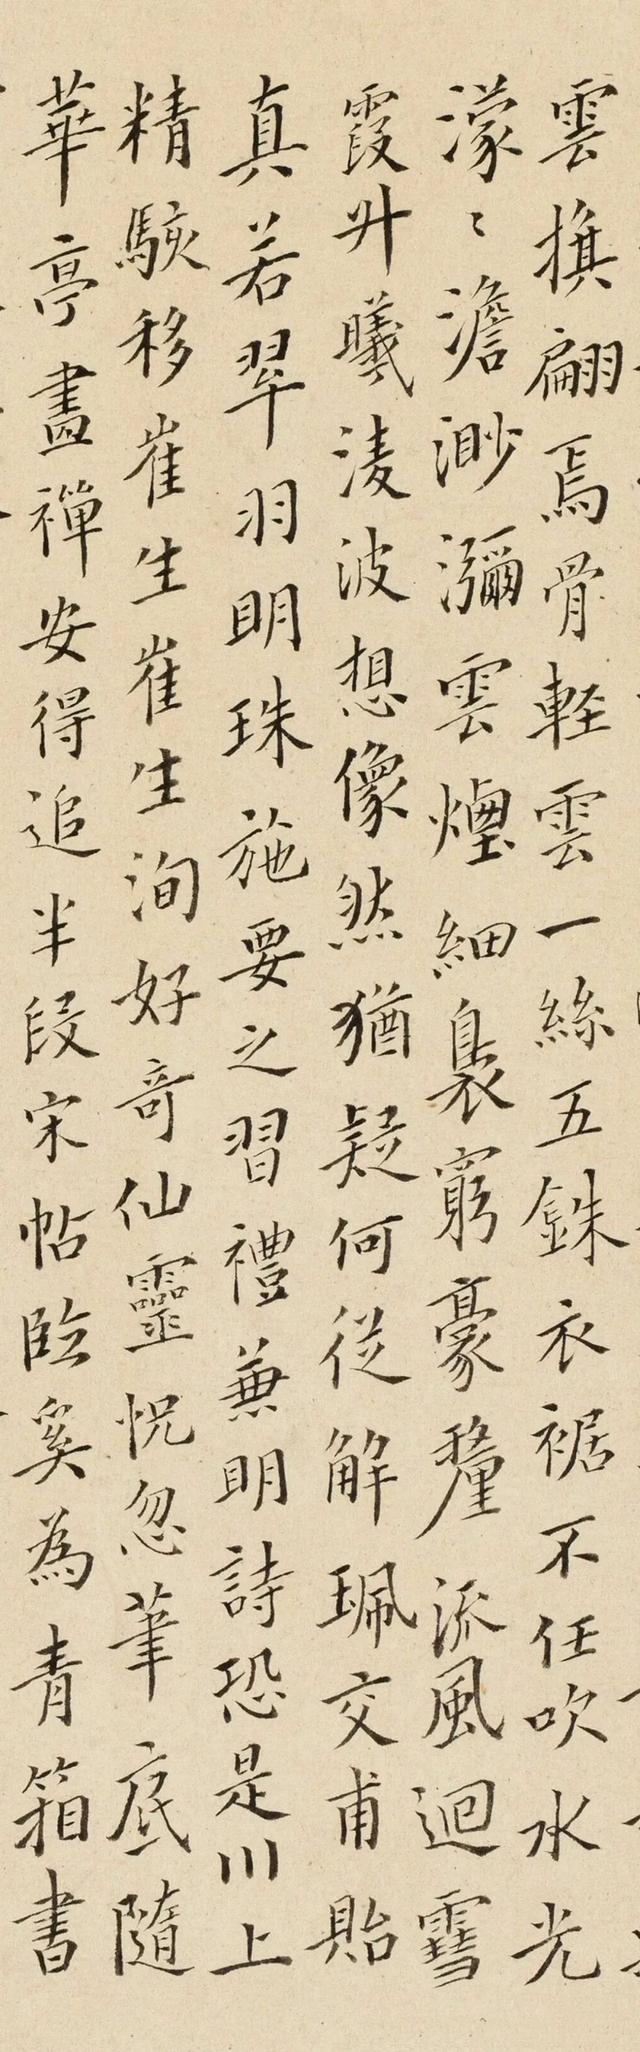 雲旗翩焉骨軽雲一絲五銖衣裾不任吹水光
濛〻澹渺瀰雲煙細裊窮豪釐流風迴雪
霞升曦淩波想像然猶疑何從解珮交甫貽
真若翠羽明珠施要之習禮兼明詩恐是川上
精駭移崔生崔生洵好奇仙靈怳忽筆底隨
華亭畫禪安得追半段宋帖臨奚為青箱書